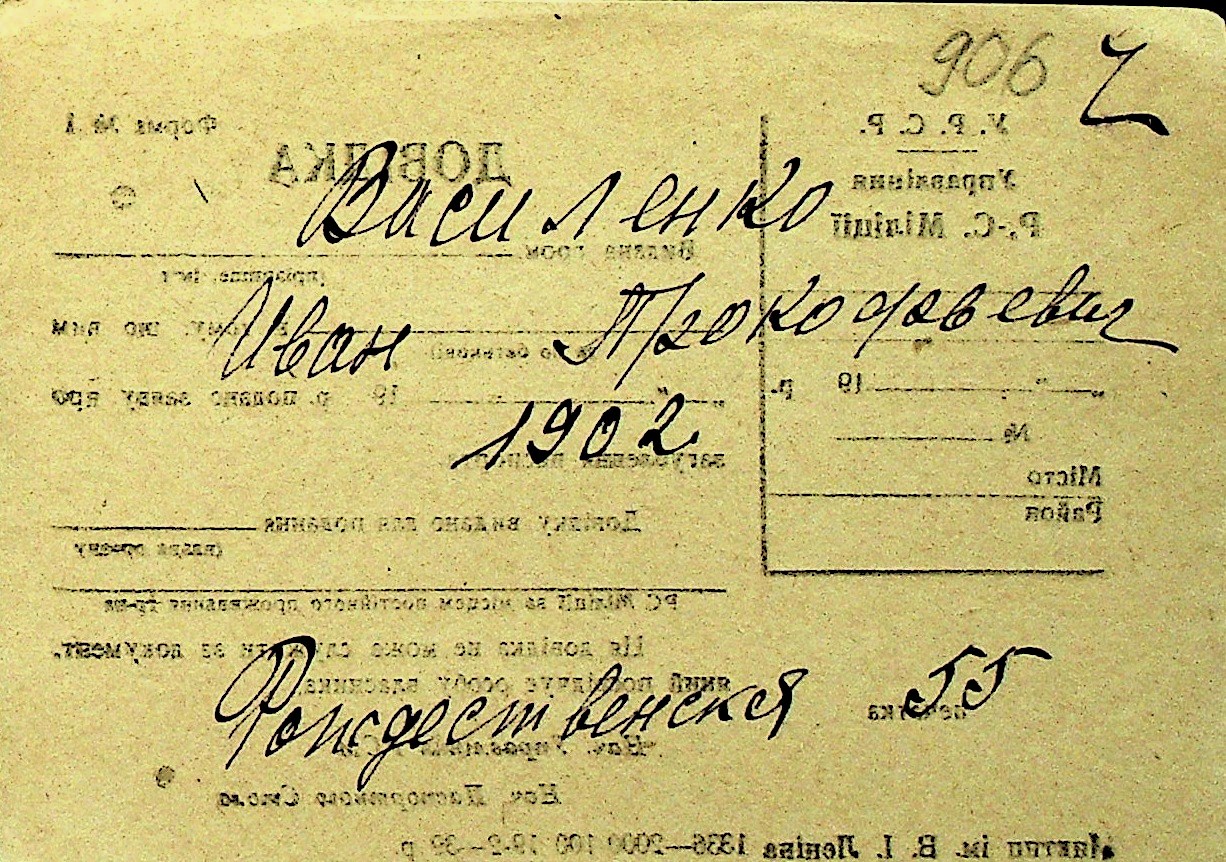 906 Ч
Василенко
Иван Прокофьевич
1902
Рождественская 55
У. Р. С. Р.
Управління
Р.-С. Міліції
„ “ 19 р.
№
Місто
Район
Форма № 1
ДОВІДКА
Видана гром.
(прізвище, ім'я
по батькові)
в тому, що ним
„ “ 19 р. подано заяву про
загублення
Довідку видано для
РС Міліції за місцем постійного проживання гр-на
Ця довідка не може служити за документ,
який посвідчує особу власника.
Печатка
Нач. Управління
Нач. Паспортного Стола
ім. В. І. Леніна 1336—2000 100 19-2-39 р.